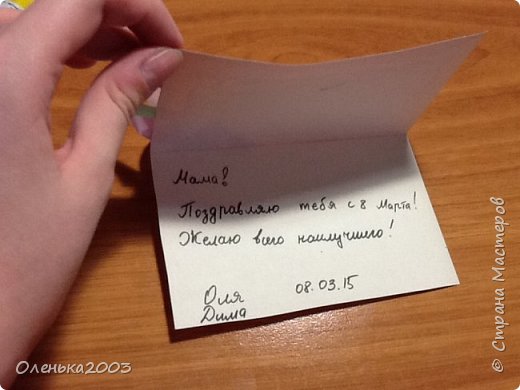 Мама!
Поздравляю тебя с 8 Марта!
Желаю всего наилучшего!
Оля 08.03.15
Дима
Оленька2003
© Страна Мастеров